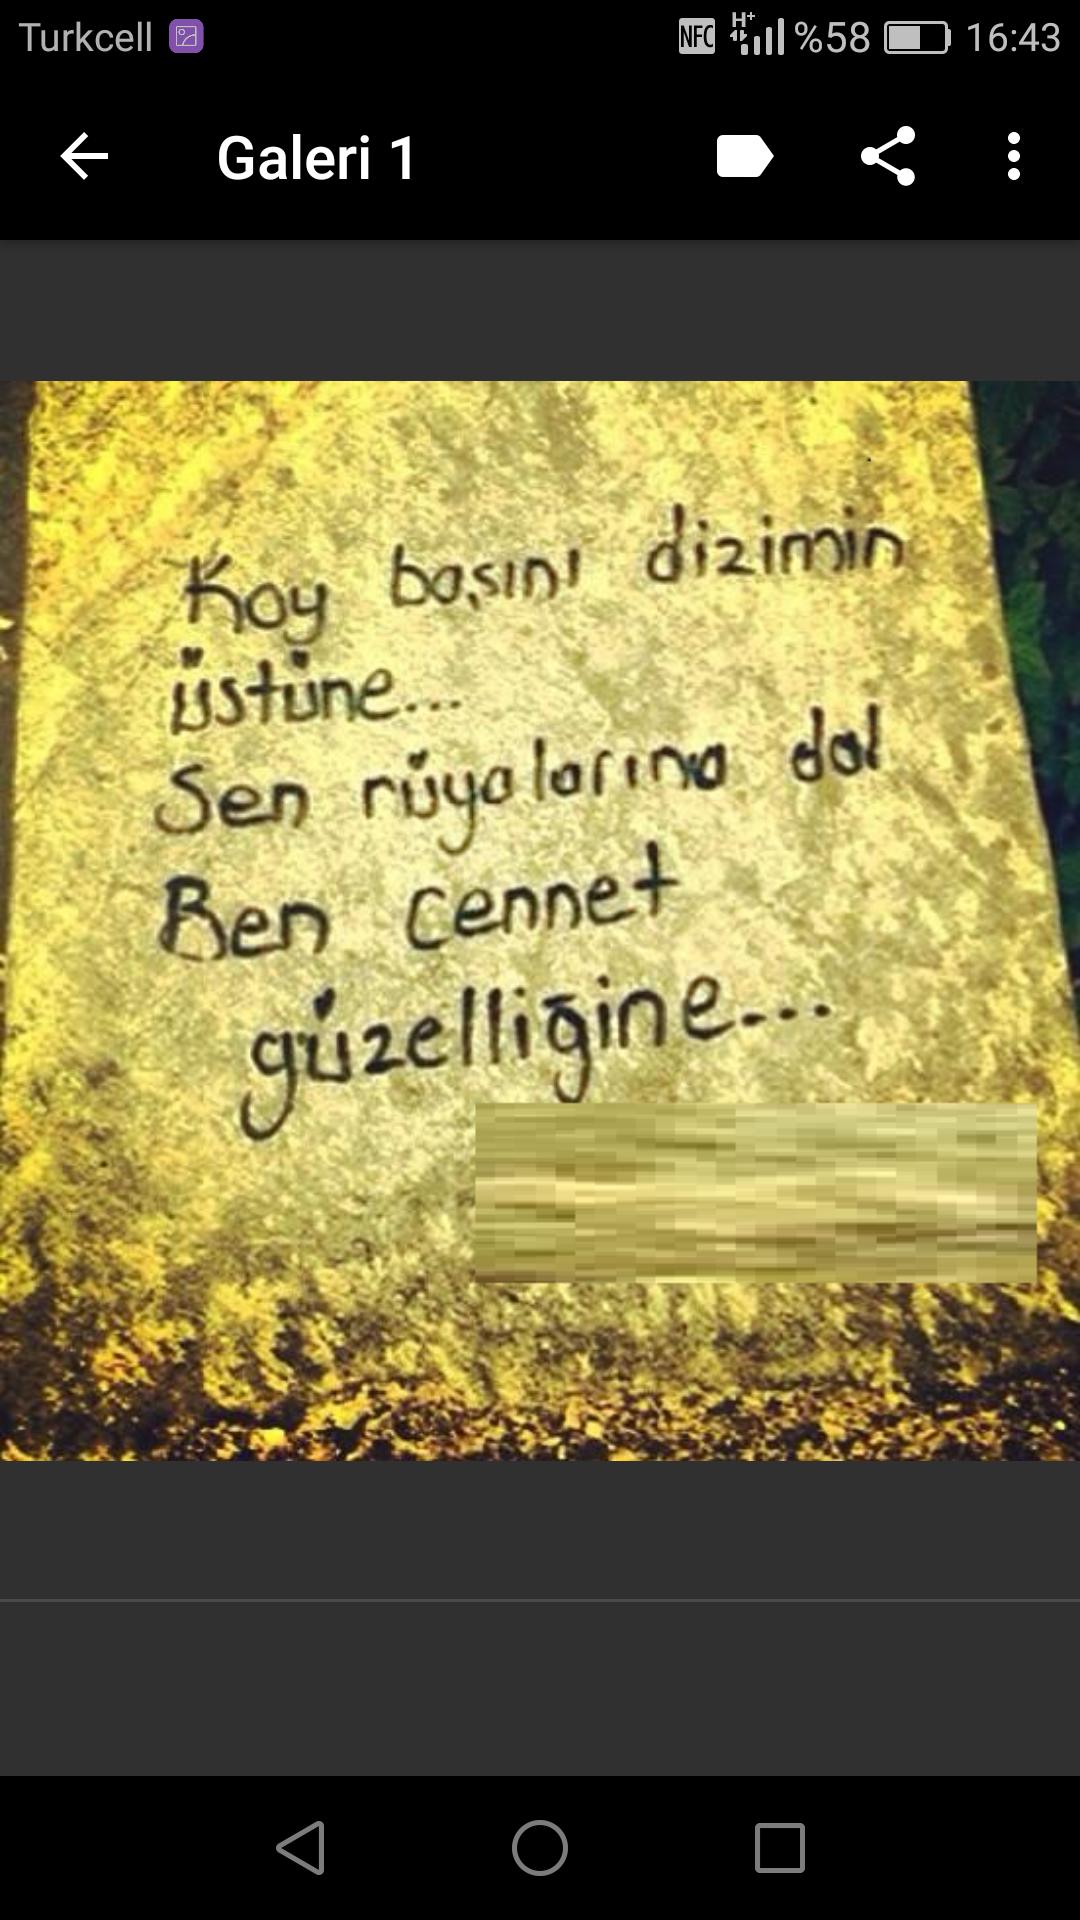 Turkcell NFC H+ %58 16:43
Galeri 1
Koy başını dizimin
üstüne...
Sen rüyalarına dal
Ben cennet
güzelliğine...